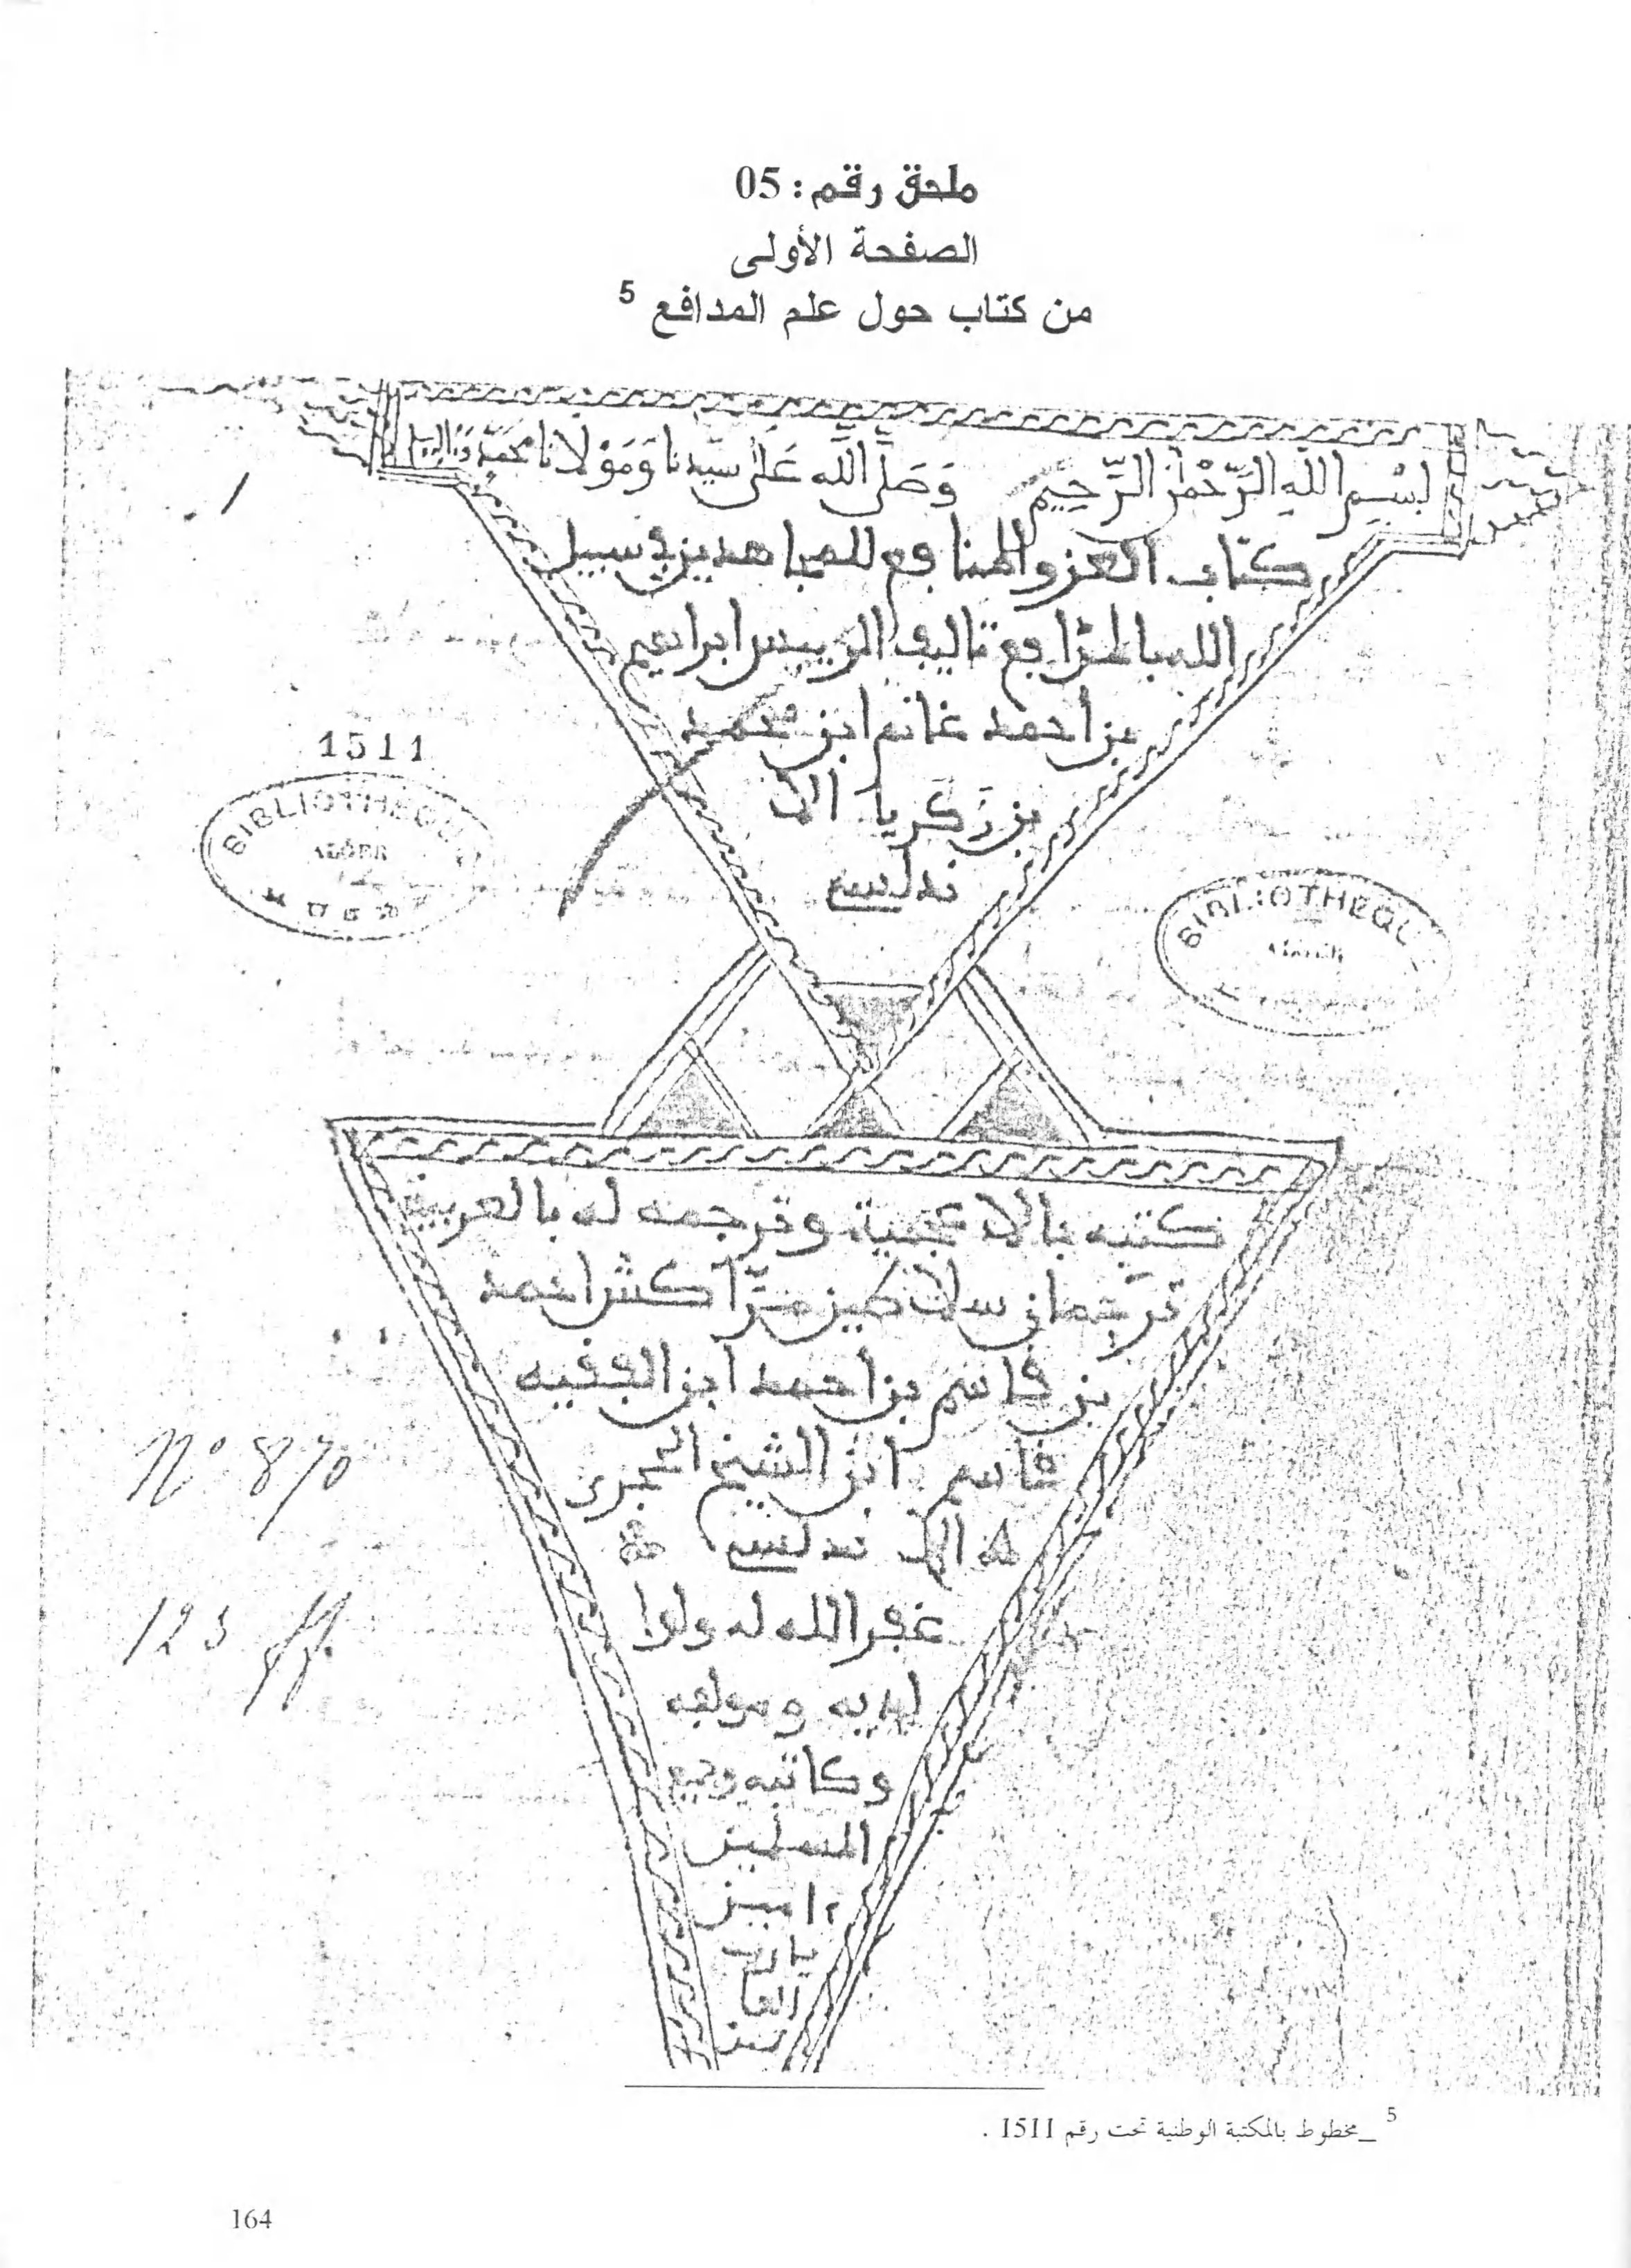 ملحق رقم: 05
الصفحة الأولى
من كتاب حول علم المدافع 5
بِسْمِ اللهِ الرَّحْمٰنِ الرَّحِيمِ وَصَلَّى اللَّه عَلَى سَيِّدِنَا وَمَوْلَانَا مُحَمَّد
كتاب العز والمنافع للمجاهدين في سبيل
الله بالمدافع تاليف الرييس ابراهيم
بن احمد غانم ابن محمد
بن زكريا الا
ندلسي
1511
BIBLIOTHEQU
ALGER
BIBLIOTHEQU
كتبه بالاعجمية وترجمه له بالعربية
ترجمان سلاطين مراكش احمد
بن قاسم بن احمد ابن الفقيه
قاسم ابن الشيخ الحجري
الاندلسي
Nº 870
غفر الله له ولوا
123 ff.
لديه ومولفه
وكاتبه وجميع
المسلمين
ءامين
يا رب
العا
لمين
5 _مخطوط بالمكتبة الوطنية تحت رقم 1511 .
164